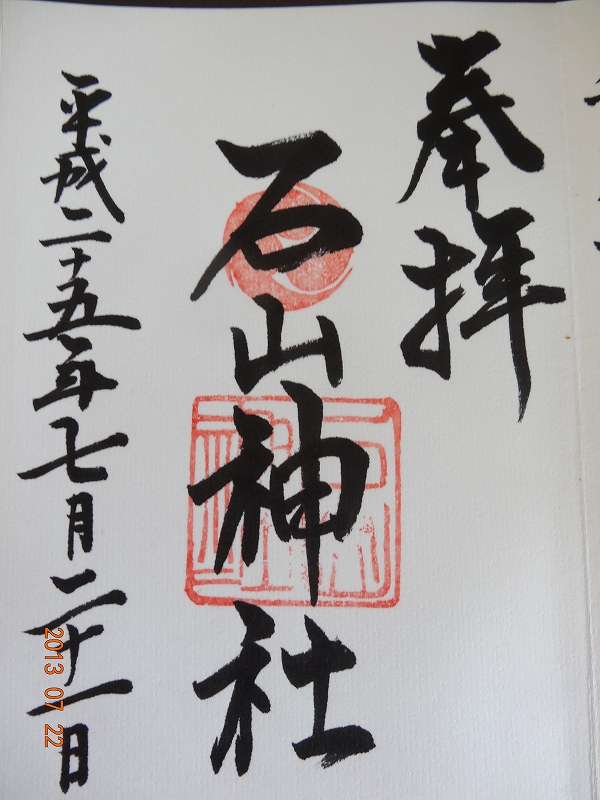 奉拝
石山神社
平成二十五年七月二十一日
2013 07 22